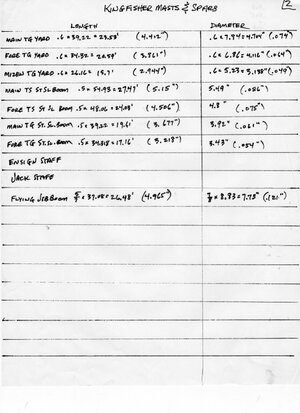 2
KINGFISHER MASTS & SPARS
LENGTH DIAMETER
MAIN TG YARD .6 x 39.22 = 23.53' (4.412") .6 x 7.84 = 4.704" (.074)
FORE TG YARD .6 x 34.32 = 20.59' (3.861") .6 x 6.86 = 4.116" (.064)
MIZEN TG YARD .6 x 26.16 = 15.7' (2.944") .6 x 5.23 = 3.138" (.049)
MAIN TS ST. SL. BOOM .5 x 54.93 = 27.47' (5.15") 5.49" (.086")
FORE TS ST. SL. BOOM .5 x 48.06 = 24.03' (4.506") 4.8" (.075")
MAIN TG ST. SL. BOOM .5 x 39.22 = 19.61' (3.677") 3.92" (.061")
FORE TG ST. SL. BOOM .5 x 34.318 = 17.16' (3.218") 3.43" (.054")
ENSIGN STAFF
JACK STAFF
FLYING JIB BOOM x 37.08 = 26.48' (4.965") x 8.83 = 7.73" (.121")